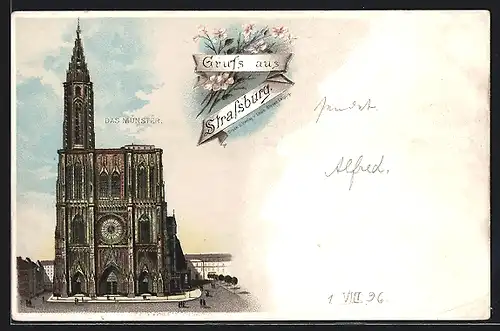 Gruß aus
Straßburg.
DAS MÜNSTER.
sendet
Alfred.
1 VIII 96.